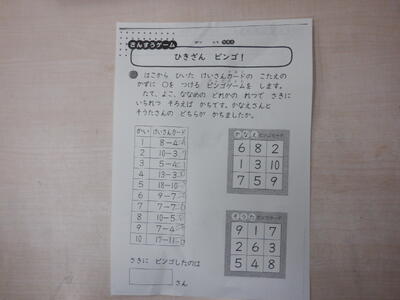 さんすうゲーム
ひきざん ビンゴ!
はこから ひいた けいさんカードの こたえの
かずに ○を つける ビンゴゲームを します。
たて、よこ、ななめの どれかの れつで さきに
いちれつ そろえば かちです。かなえさんと
そうたさんの どちらが かちましたか。
かい けいさんカード
1 8-4
2 10-3
3 5-4
4 13-3
5 18-10
6 9-7
7 7-7
8 10-5
9 7-4
10 17-11
かなえ ビンゴカード
6 8 2
1 3 10
7 5 9
そうた ビンゴカード
9 1 7
2 6 3
5 4 8
さきに ビンゴしたのは
さん